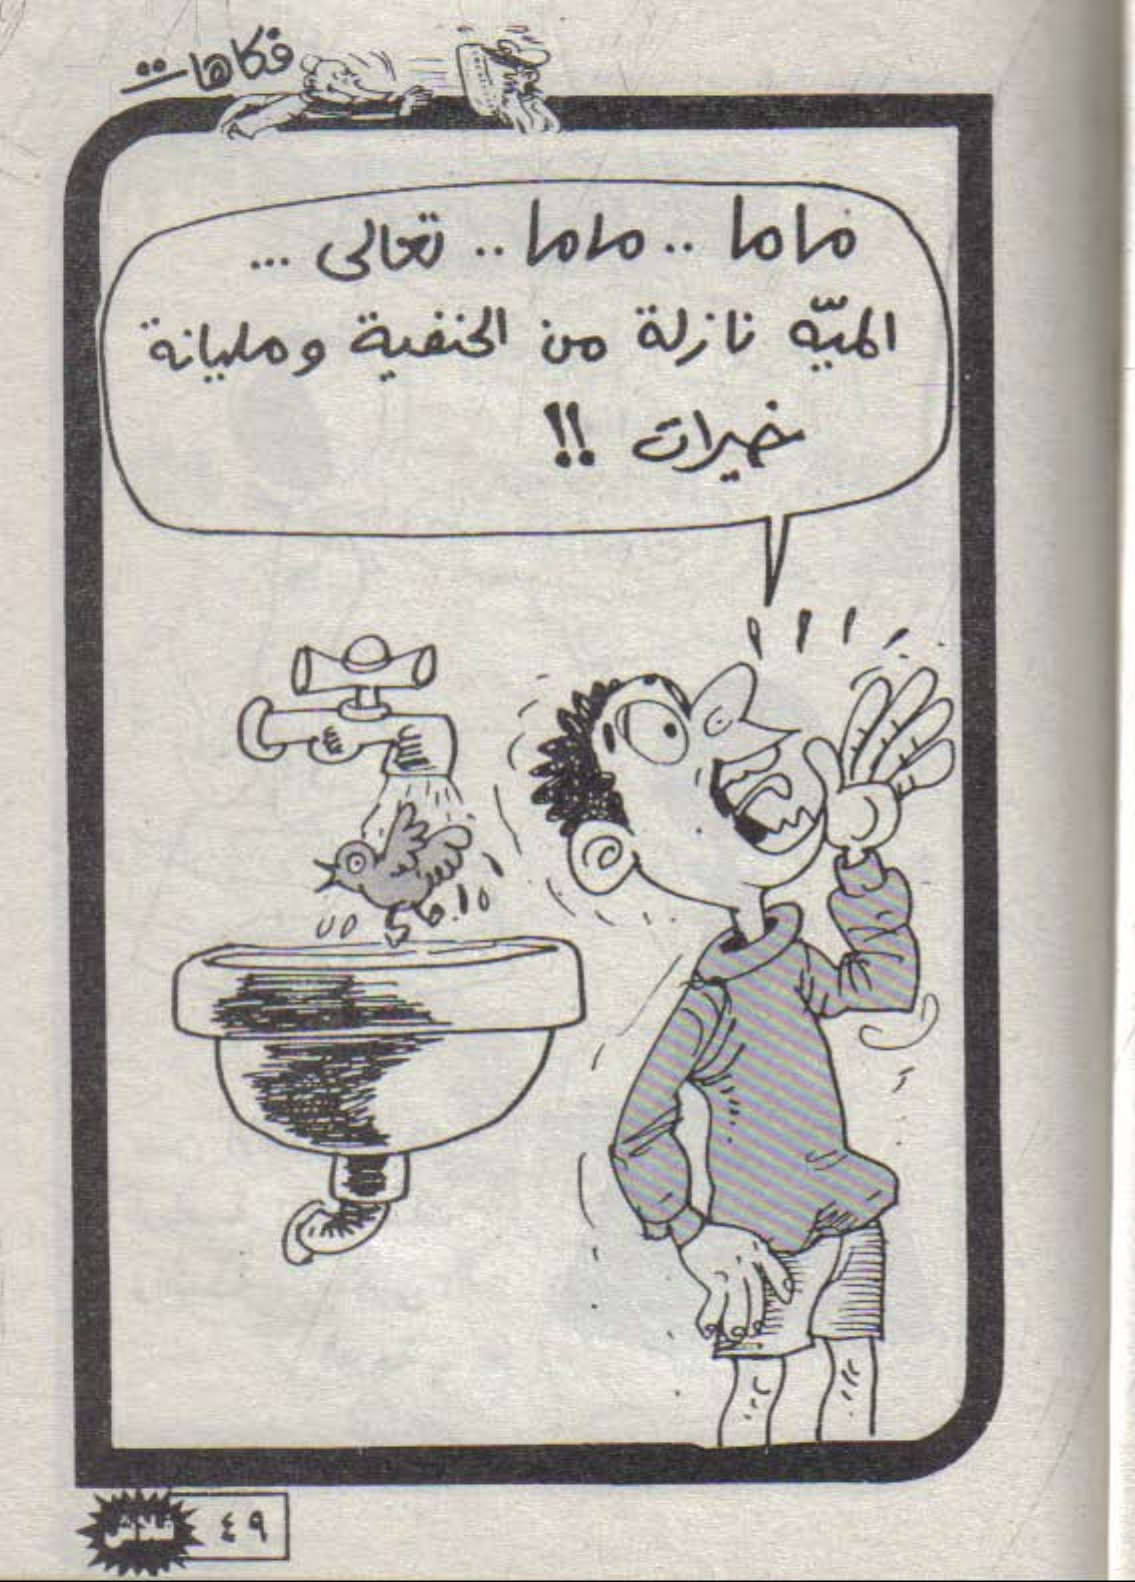 فكاهات
ماما .. ماما .. تعالى ...
الميّه نازلة من الحنفية ومليانة
خيرات !!
٤٩